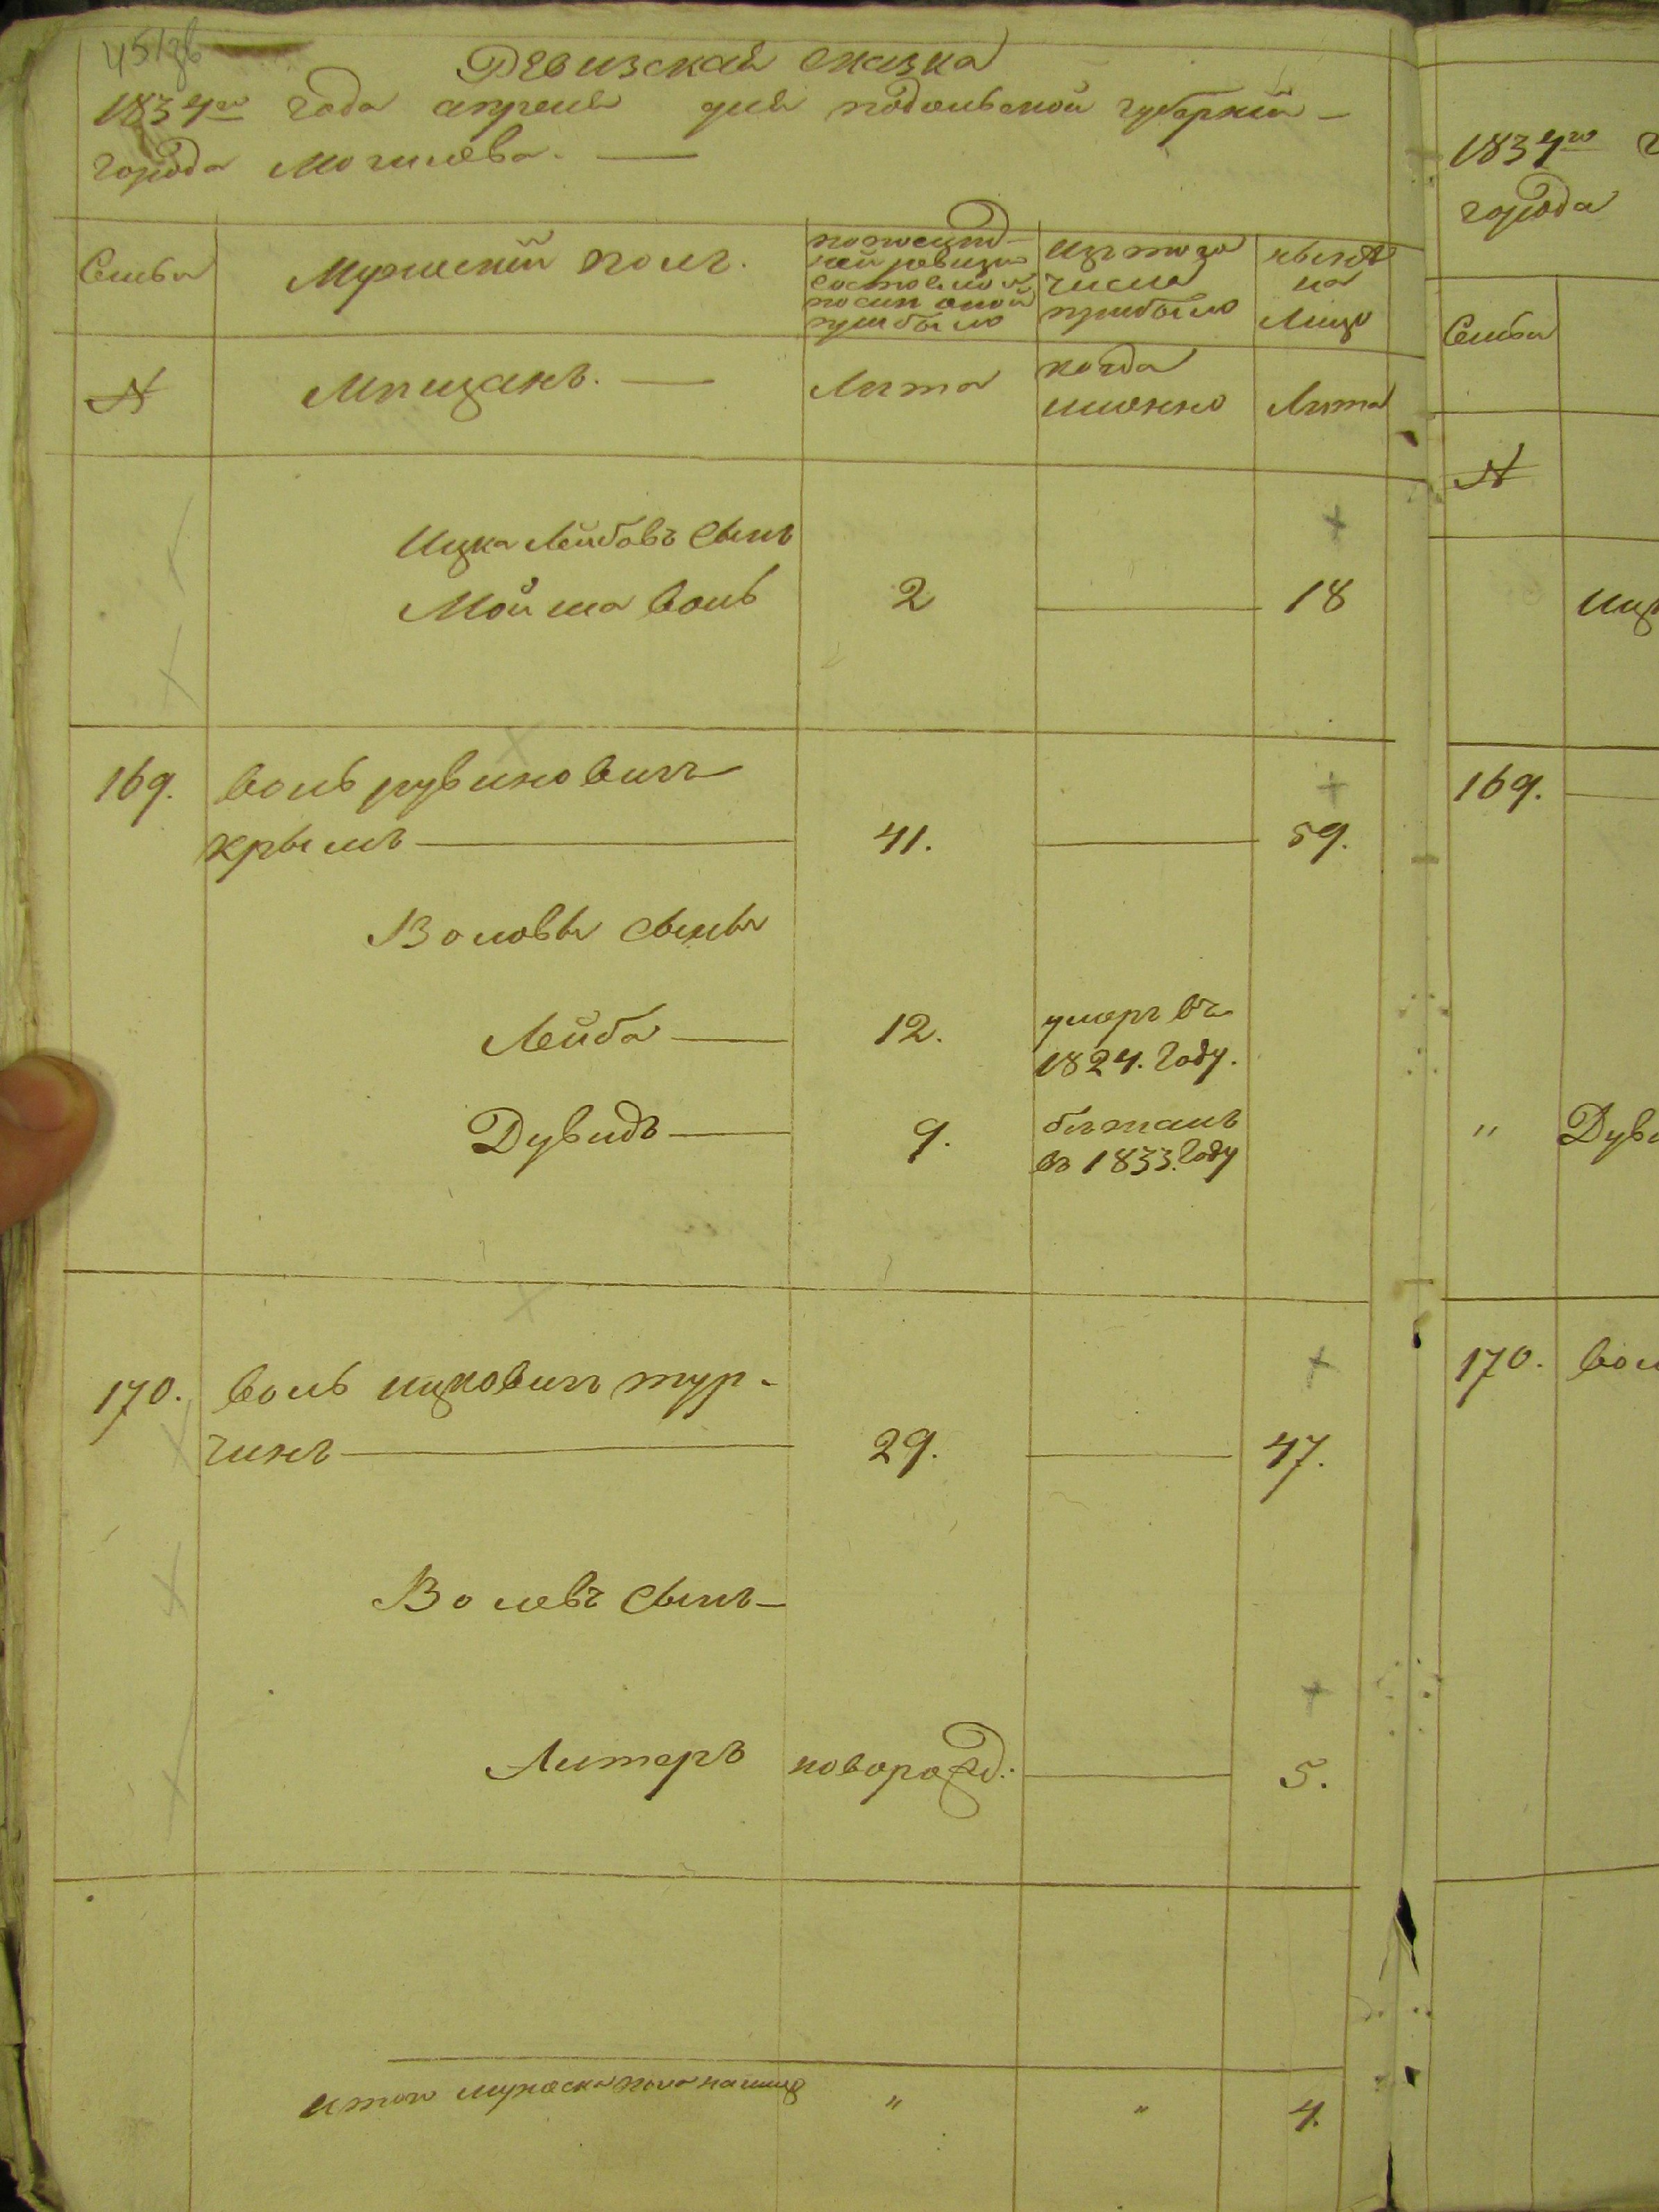 451зв
Ревизская сказка
1834го года апреля дня подольской губернии —
города Могилева. —
Семьи
Мужеский полъ.
по последней ревизии состояло и после оной прибыло
Изъ того числа прибыло
ныне на Лицо
№
Мещанъ. —
Лета
когда именно
Лета
Ицка Лейбовъ сынъ
Мойша воль 2 — 18
169. воль рувиновичъ
крымъ — 41. — 59.
Воловы сыны
Лейба — 12. умеръ въ
1824. году.
Дувидъ — 9. бежалъ
въ 1833. году
170. воль ицковичъ тур-
чинъ — 29. — 47.
Волевъ сынъ —
Литеръ новорожд: — 5.
итого мужеска пола налицо " " 4.
1834го
города
Семьи
№
169.
" Дуви
170. вол